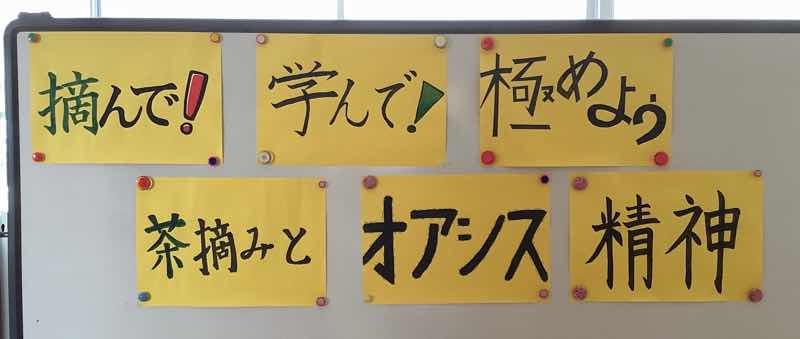 摘んで!学んで!極めよう
茶摘みとオアシス精神